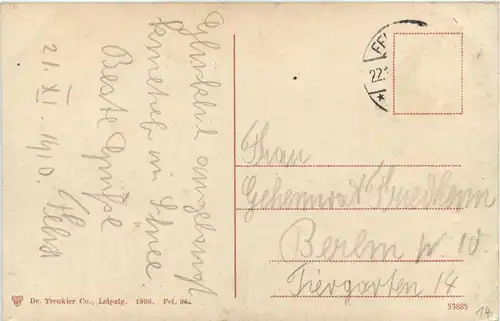 Glücklich angelangt
knietief im Schnee.
Beste Grüße
21. XI. 1910.
FE
22.
Frau
Geheimrat Friedheim
Berlin
Tiergarten 14
Dr. Trenkler Co., Leipzig. 1908. Fel. 34.
53885
14